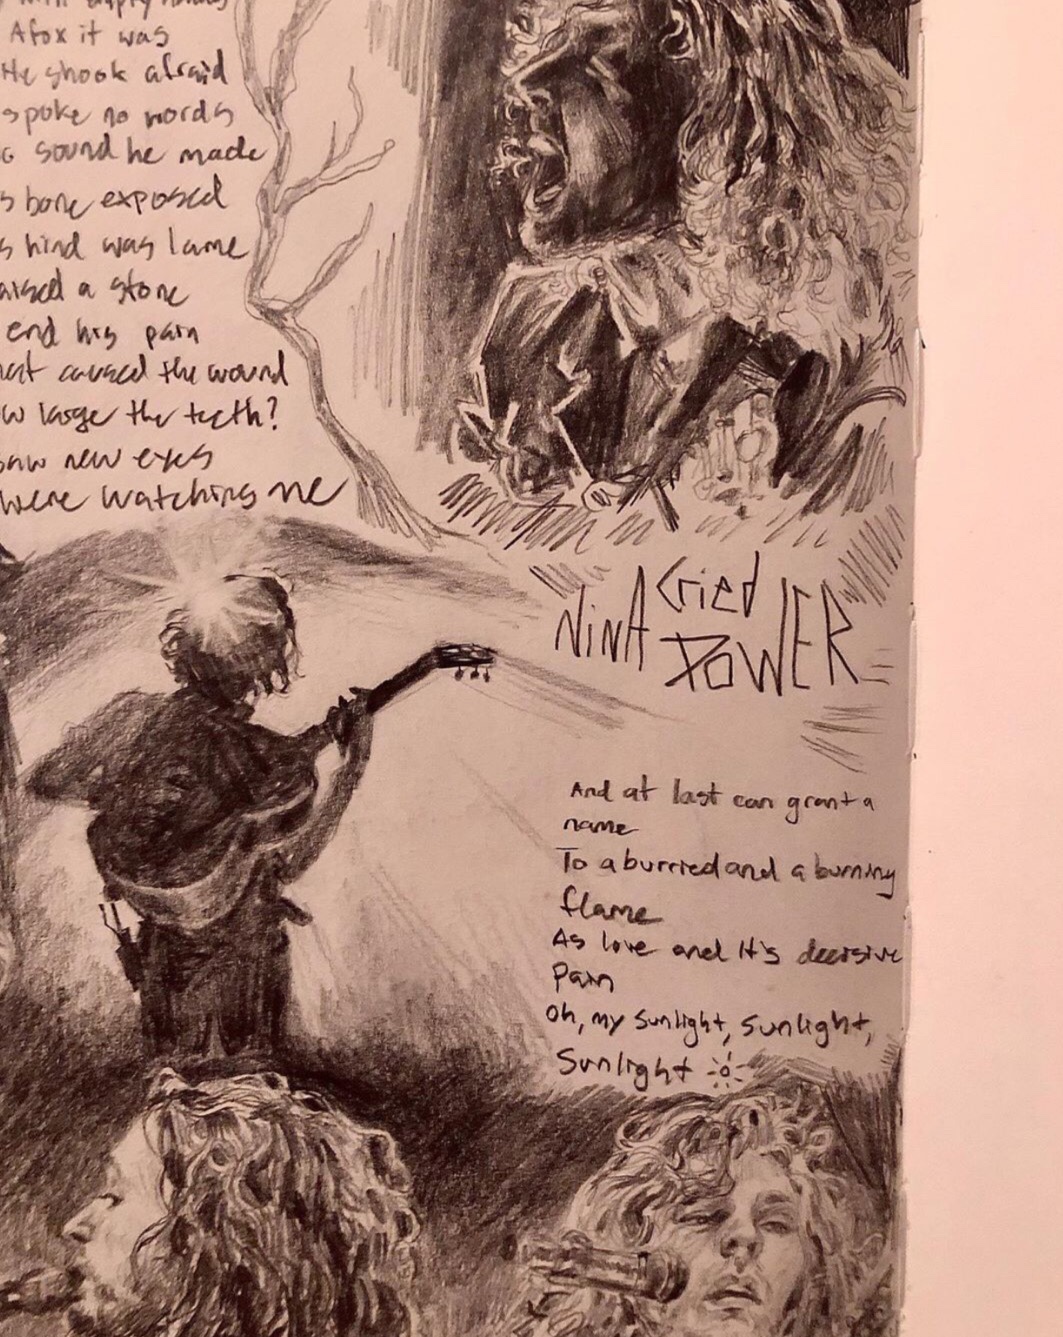 with empty hands
A fox it was
He shook afraid
spoke no words
sound he made
bone exposed
hind was lame
aised a stone
end his pain
caused the wound
large the teeth?
saw new eyes
were watching me
NiNA Cried
POWER
And at last can grant a
name
To a burried and a burning
flame
As love and It's decisive
Pain
Oh, my Sunlight, Sunlight,
Sunlight